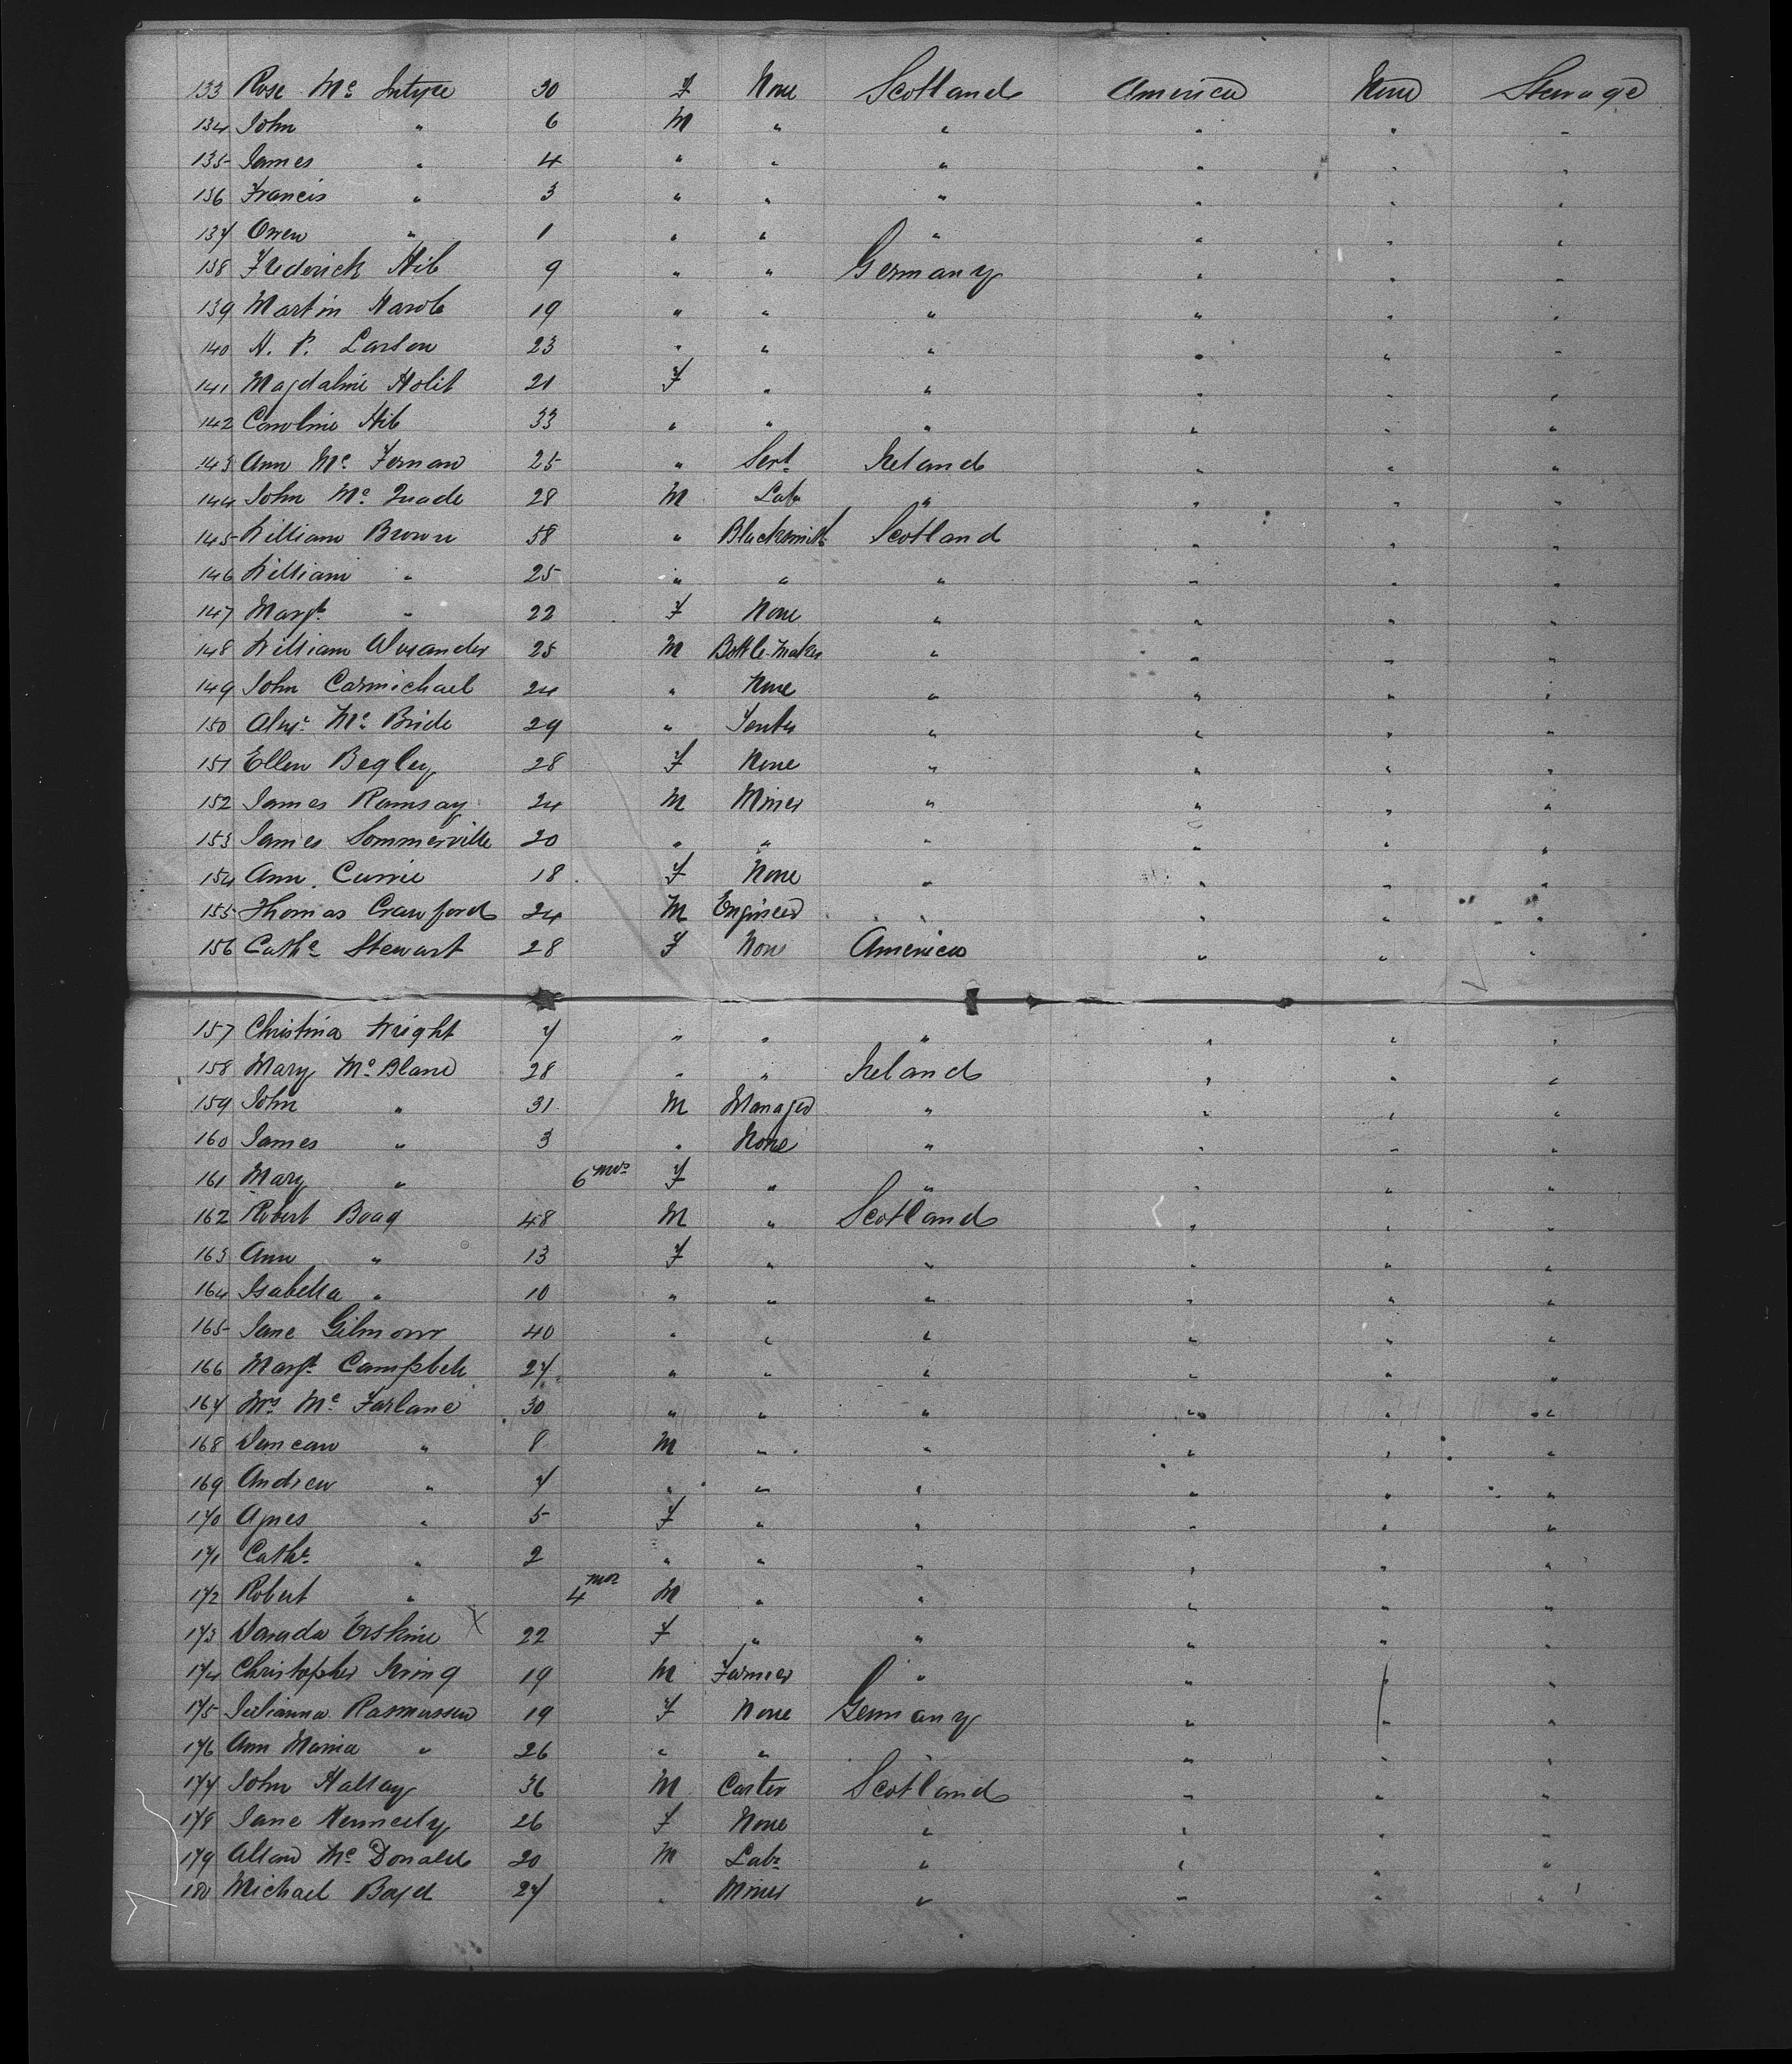 133 Rose Mc Intyre 30 F None Scotland America None Steerage
134 John " 6 M " " " " "
135 James " 4 " " " " " "
136 Francis " 3 " " " " " "
137 Owen " 1 " " " " " "
138 Frederick Hib 9 " " Germany " " "
139 Martin 19 " " " " " "
140 H. P. Larsen 23 " " " " " "
141 Magdaline Holit 21 F " " " " "
142 Caroline Hib 33 " " " " " "
143 Ann Mc Fernan 25 " Servt Ireland " " "
144 John Mc Quade 28 M Labr " " " "
145 William Brown 58 " Blacksmith Scotland " " "
146 William " 25 " " " " " "
147 Margt " 22 F None " " " "
148 William Alexander 25 M Bottle-Maker " " " "
149 John Carmichael 24 " None " " " "
150 Alexr Mc Bride 29 " " " " "
151 Ellen Begley 28 F None " " " "
152 James Ramsay 24 M Miner " " " "
153 James Sommerville 20 " " " " " "
154 Ann Currie 18 F None " " " "
155 Thomas Crawford 24 M Engineer " " " "
156 Cathe Stewart 28 F None America " " "
157 Christina Wright 7 " " " " " "
158 Mary Mc Blane 28 " " Ireland " " "
159 John " 31 M Manager " " " "
160 James " 3 " None " " " "
161 Mary " 6 mos F " " " " "
162 Robert Boag 48 M " Scotland " " "
163 Ann " 13 F " " " " "
164 Isabella " 10 " " " " " "
165 Jane Gilmour 40 " " " " " "
166 Margt Campbell 27 " " " " " "
167 Mrs Mc Farlane 30 " " " " " "
168 Duncan " 8 M " " " " "
169 Andrew " 7 " " " " " "
170 Agnes " 5 F " " " " "
171 Cathe " 2 " " " " " "
172 Robert " 4 mos M " " " " "
173 Erskine X 22 F " " " " "
174 Christopher King 19 M Farmer " " " "
175 Julianna Rasmussen 19 F None Germany " " "
176 Ann Maria " 26 " " " " " "
177 John Hallay 36 M Carter Scotland " " "
178 Jane Kennedy 26 F None " " " "
179 Allan Mc Donald 20 M Labr " " " "
180 Michael Boyd 27 " Miner " " " "